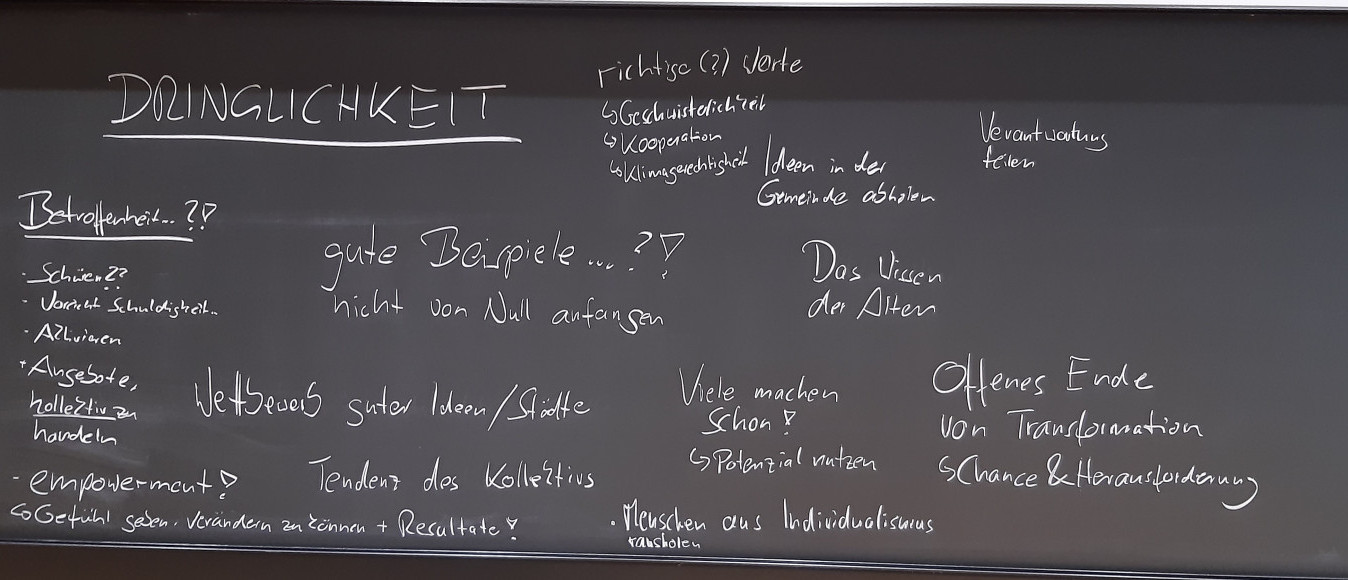 DRINGLICHKEIT
richtige (?) Worte
↳ Geschwisterlichkeit
↳ Kooperation
↳ Klimagerechtigkeit
Ideen in der
Gemeinde abholen
Verantwortung
teilen
Betroffenheit... ?!
gute Beispiele... ?!
nicht von Null anfangen
Das Wissen
der Alten
- Schüren??
- Vorsicht Schuldigkeit..
- Aktivieren
+ Angebote,
kollektiv zu
handeln
Wettbewerb guter Ideen/Städte
Viele machen
schon!
↳ Potenzial nutzen
Offenes Ende
von Transformation
↳ Chance & Herausforderung
- empowerment!
↳ Gefühl geben, verändern zu können + Resultate!
Tendenz des Kollektivs
• Menschen aus Individualismus
rausholen